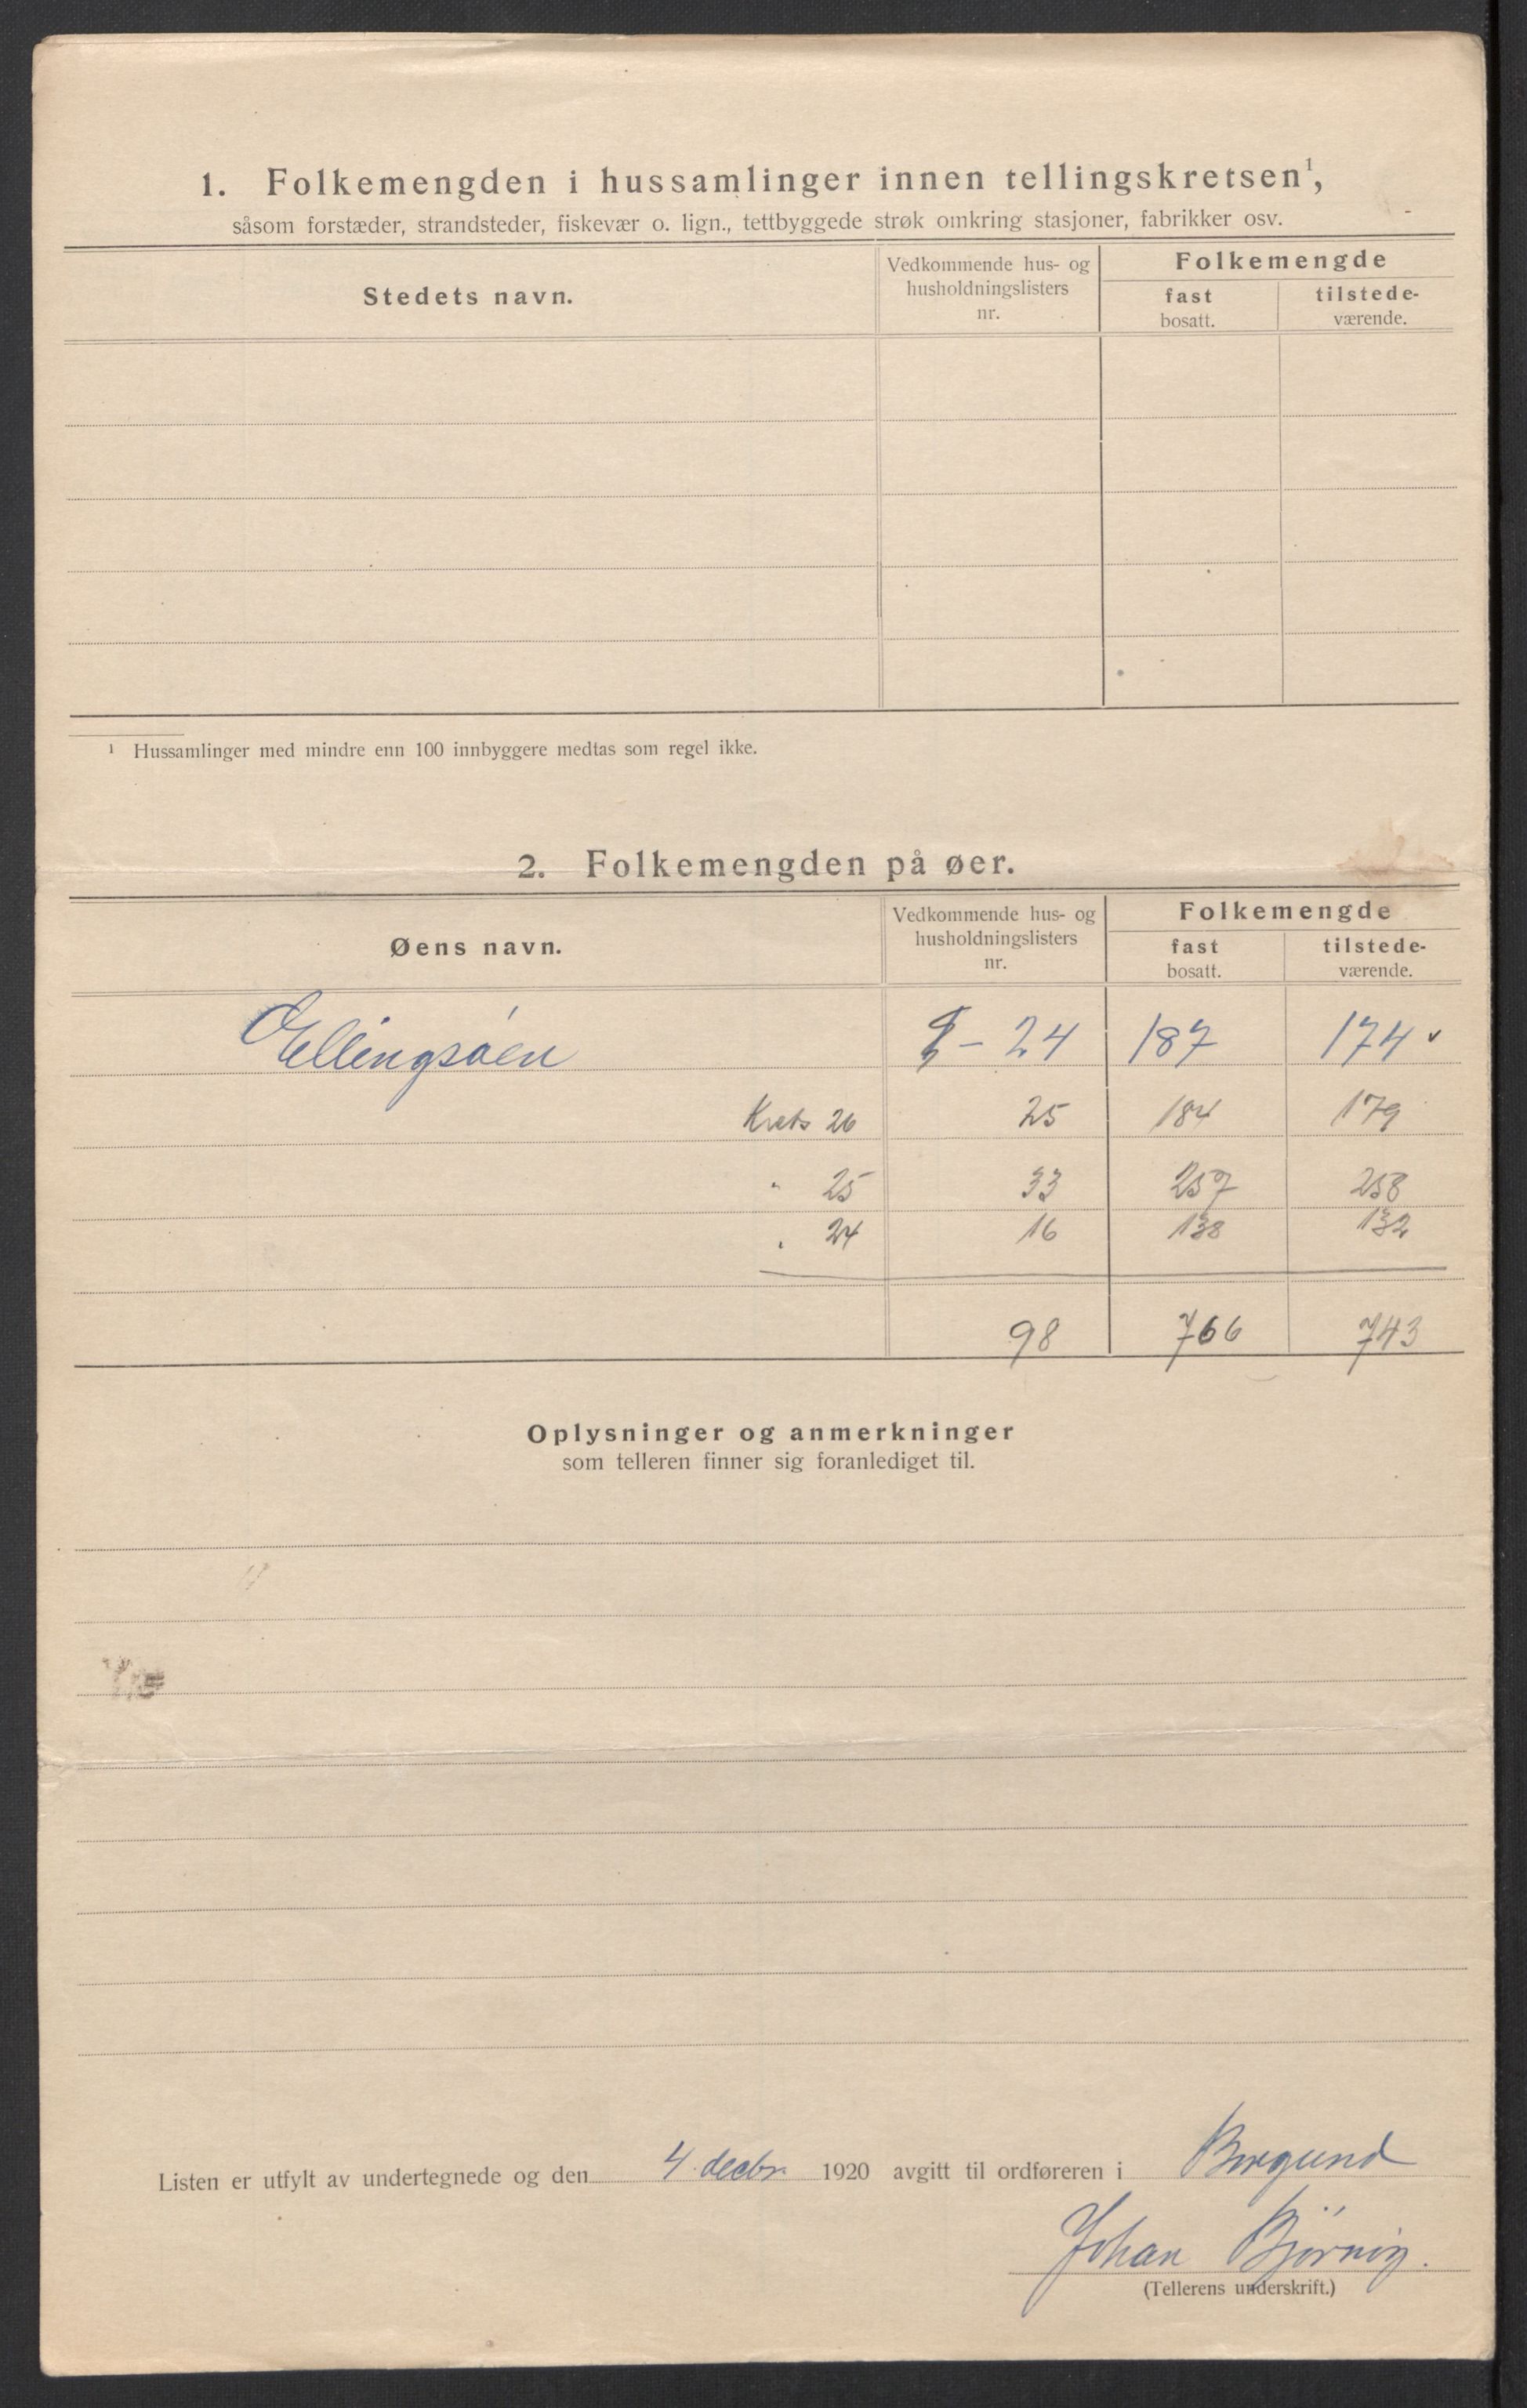 1. Folkemengden i hussamlinger innen tellingskretsen¹,
såsom forstæder, strandsteder, fiskevær o. lign., tettbyggede strøk omkring stasjoner, fabrikker osv.
Stedets navn.
Vedkommende hus- og
husholdningslisters
nr.
Folkemengde
fast
bosatt.
tilstede-
værende.
¹ Hussamlinger med mindre enn 100 innbyggere medtas som regel ikke.
2. Folkemengden på øer.
Øens navn.
Vedkommende hus- og
husholdningslisters
nr.
Folkemengde
fast
bosatt.
tilstede-
værende.
Ellingsøen – 24 187 174 v
Krets 26 25 184 179
" 25 33 257 258
" 24 16 138 132
98 766 743
Oplysninger og anmerkninger
som telleren finner sig foranlediget til.
Listen er utfylt av undertegnede og den 4. decbr. 1920 avgitt til ordføreren i Borgund
Johan
(Tellerens underskrift.)